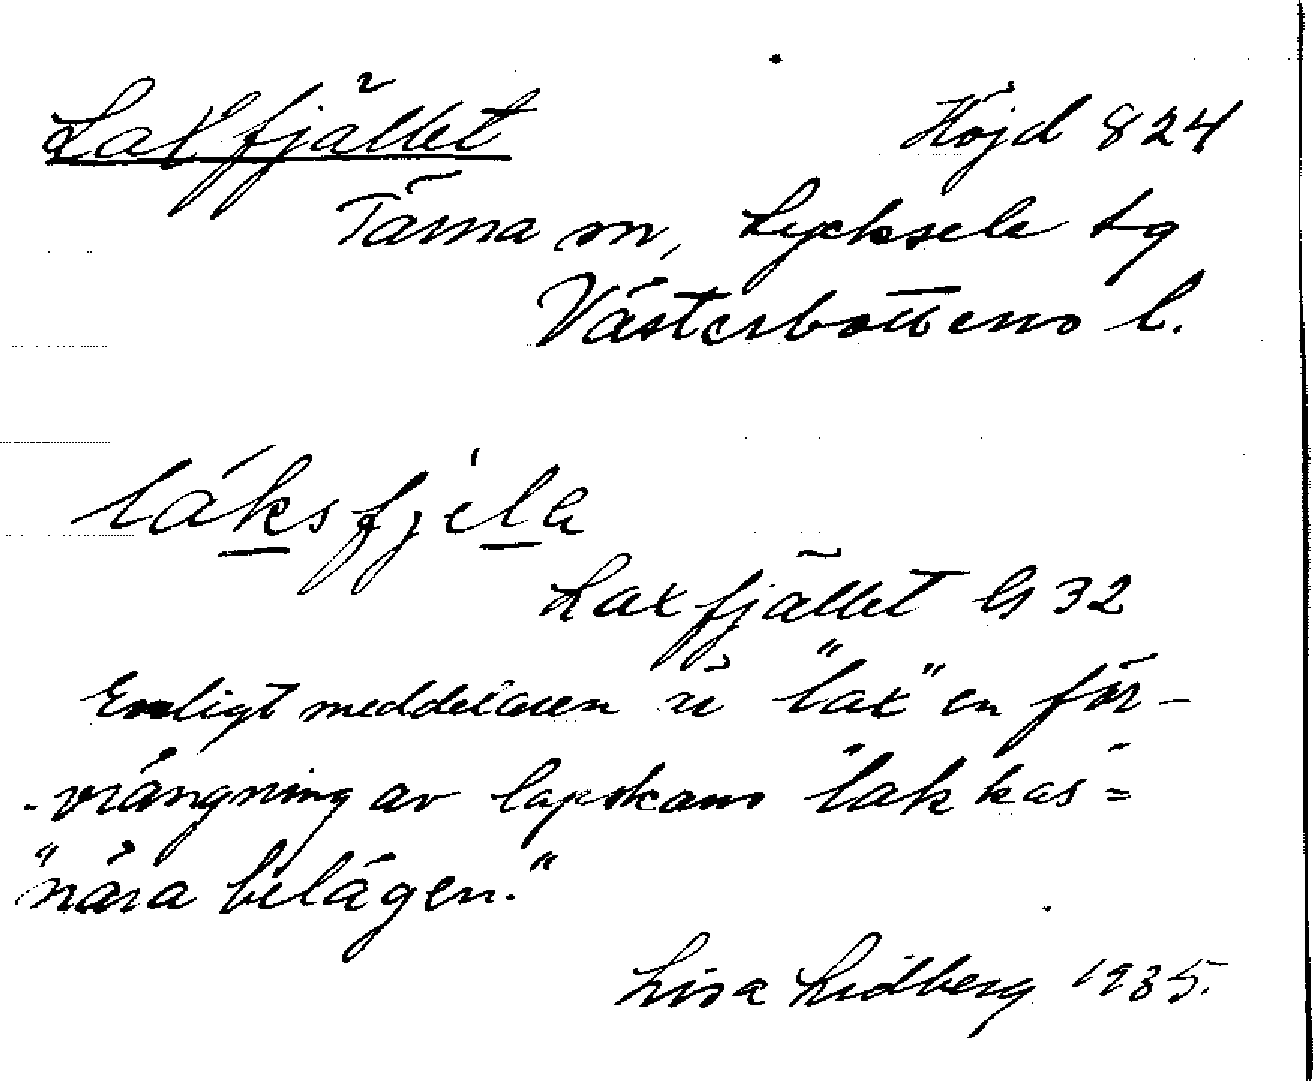 Laxfjället Höjd 824
Tärna sn, Lycksele tg
Västerbottens l.
láksfjela
Laxfjället G 32
Enligt meddelaren är "lax" en för-
-vrängning av lapskans lakkas =
"nära belägen."
Lisa Lidberg 1935.